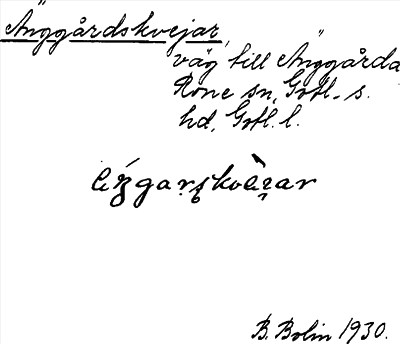 Änggårdskvejar,
väg till Änggårda
Rone sn, Gotl. s.
hd, Gotl. l.
B. Bolin 1930.